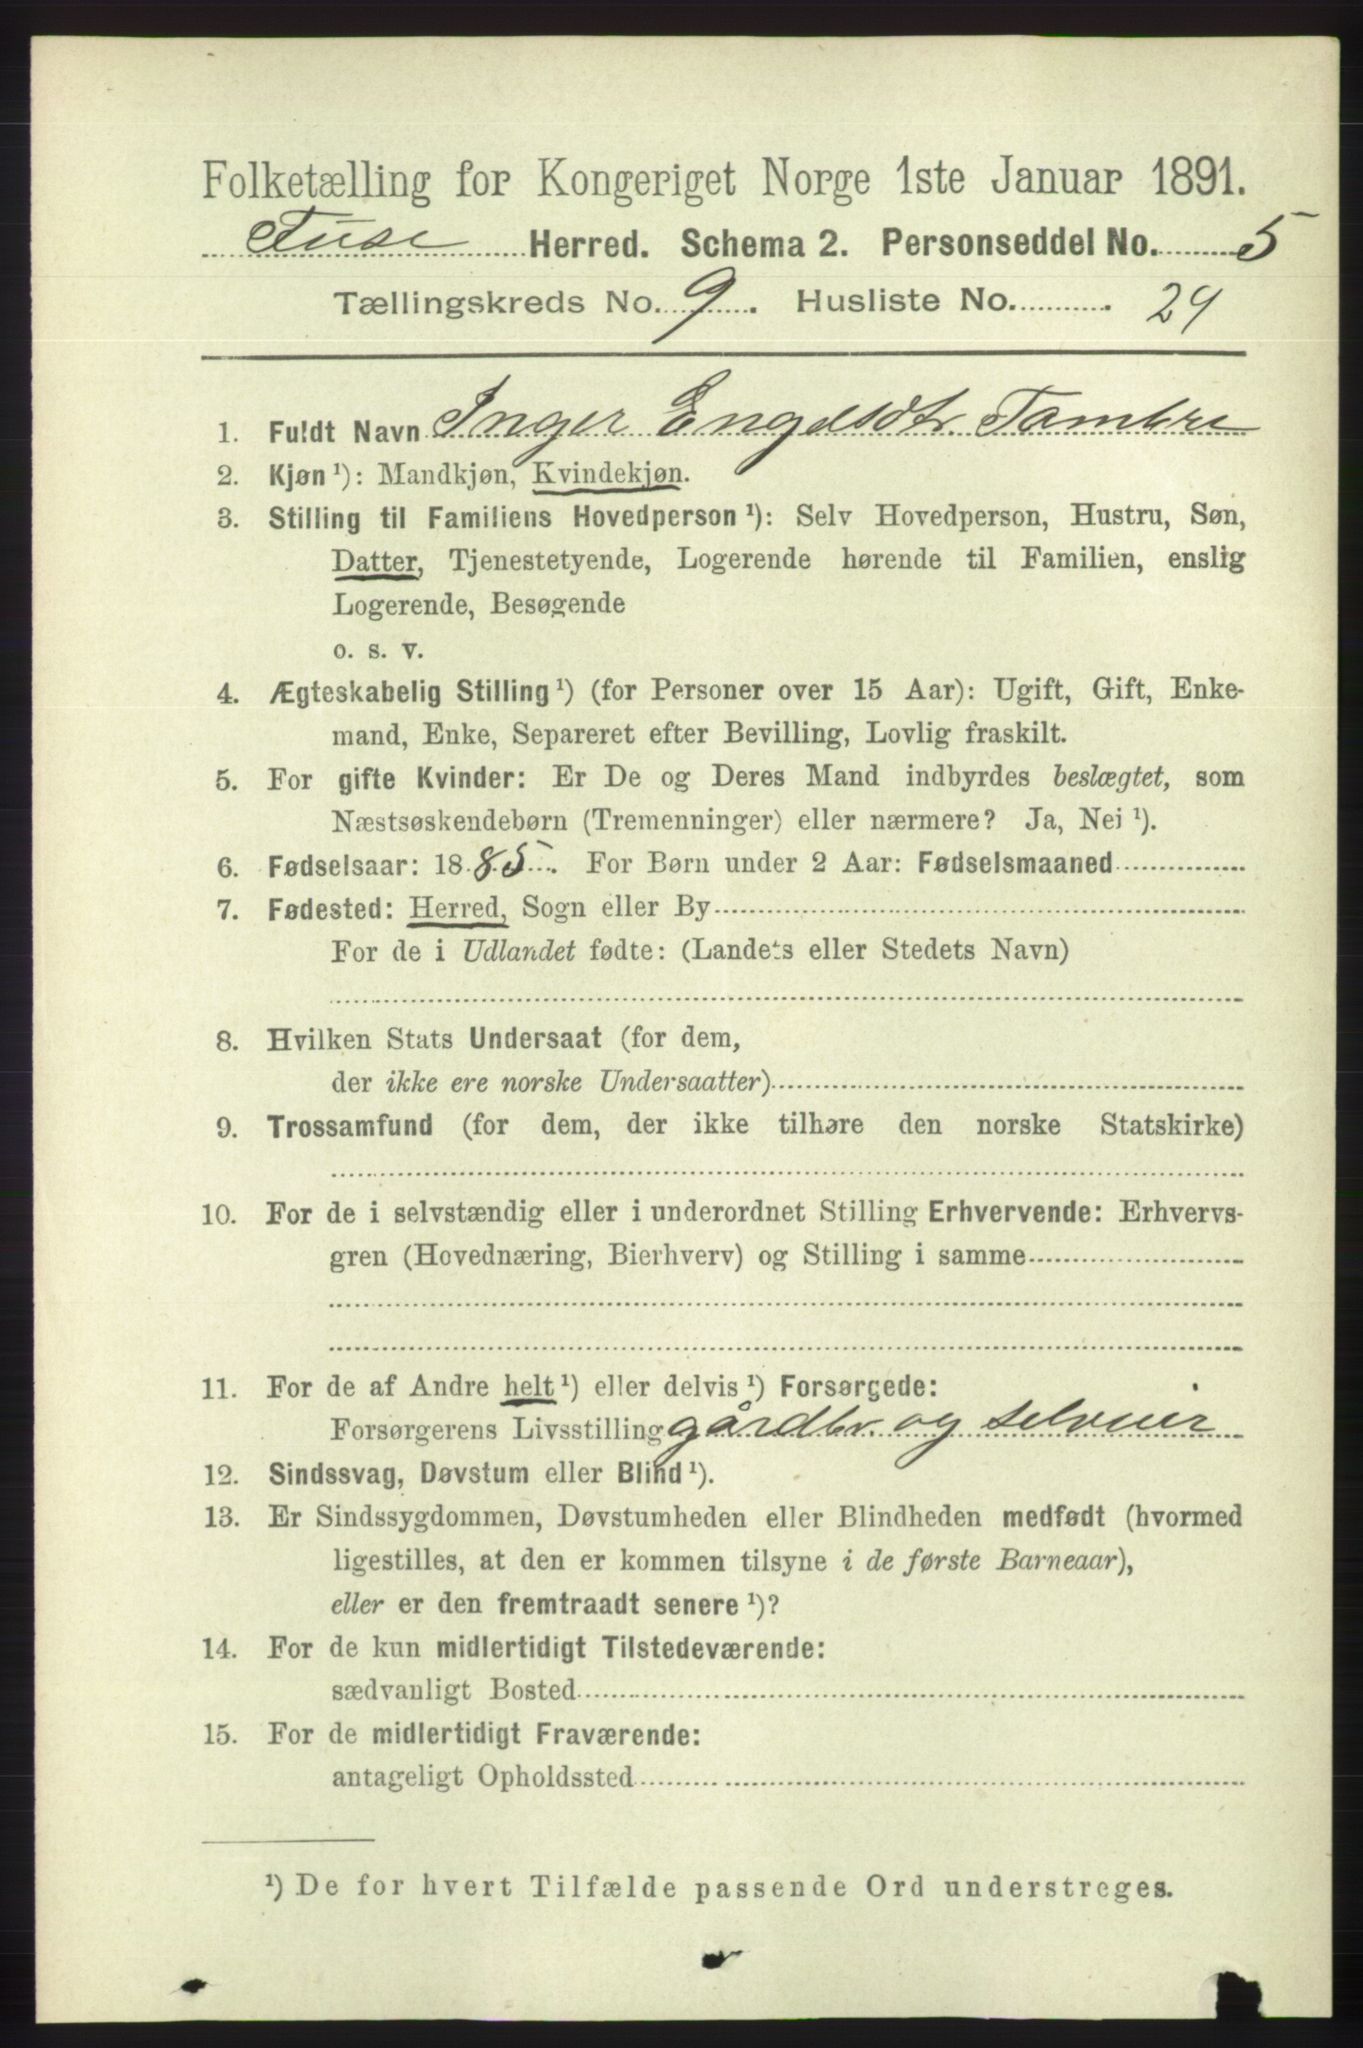 Folketælling for Kongeriget Norge 1ste Januar 1891.
Fuse Herred. Schema 2. Personseddel No. 5
Tællingskreds No. 9. Husliste No. 29
1. Fuldt Navn Inger Engelsdtr. Tombre
2. Kjøn ¹): Mandkjøn, Kvindekjøn.
3. Stilling til Familiens Hovedperson ¹): Selv Hovedperson, Hustru, Søn,
Datter, Tjenestetyende, Logerende hørende til Familien, enslig
Logerende, Besøgende
o. s. v.
4. Ægteskabelig Stilling ¹) (for Personer over 15 Aar): Ugift, Gift, Enke-
mand, Enke, Separeret efter Bevilling, Lovlig fraskilt.
5. For gifte Kvinder: Er De og Deres Mand indbyrdes beslægtet, som
Næstsøskendebørn (Tremenninger) eller nærmere? Ja, Nei ¹).
6. Fødselsaar: 1885. For Børn under 2 Aar: Fødselsmaaned
7. Fødested: Herred, Sogn eller By
For de i Udlandet fødte: (Landets eller Stedets Navn)
8. Hvilken Stats Undersaat (for dem,
der ikke ere norske Undersaatter)
9. Trossamfund (for dem, der ikke tilhøre den norske Statskirke)
10. For de i selvstændig eller i underordnet Stilling Erhvervende: Erhvervs-
gren (Hovednæring, Bierhverv) og Stilling i samme
11. For de af Andre helt ¹) eller delvis ¹) Forsørgede:
Forsørgerens Livsstilling gårdbr. og selveier
12. Sindssvag, Døvstum eller Blind ¹).
13. Er Sindssygdommen, Døvstumheden eller Blindheden medfødt (hvormed
ligestilles, at den er kommen tilsyne i de første Barneaar),
eller er den fremtraadt senere ¹)?
14. For de kun midlertidigt Tilstedeværende:
sædvanligt Bosted
15. For de midlertidigt Fraværende:
antageligt Opholdssted
¹) De for hvert Tilfælde passende Ord understreges.